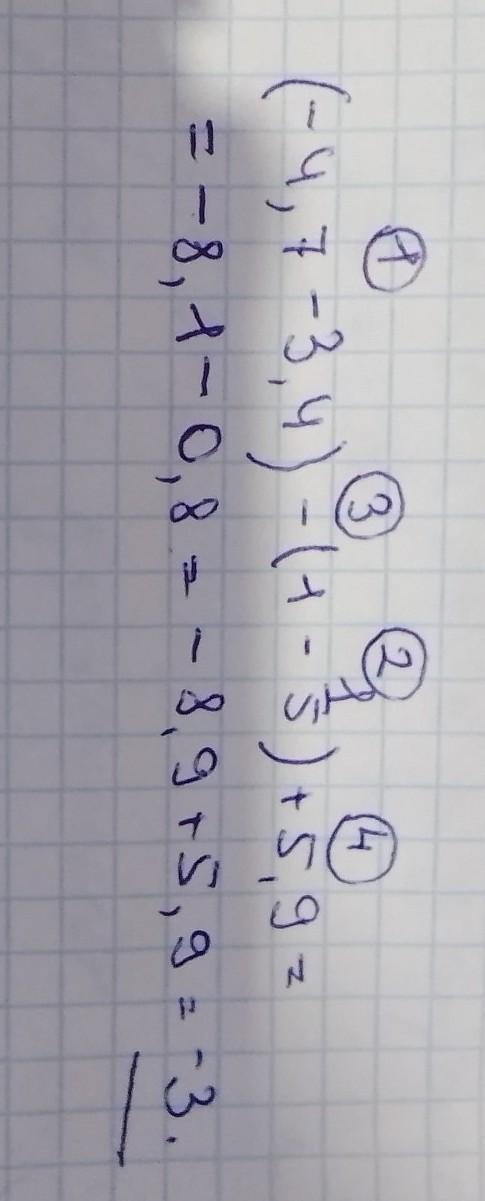 ① ③ ② ④
(-4,7 -3,4) - (1 - 1/5) + 5,9 =
= -8,1 - 0,8 = -8,9 + 5,9 = -3.